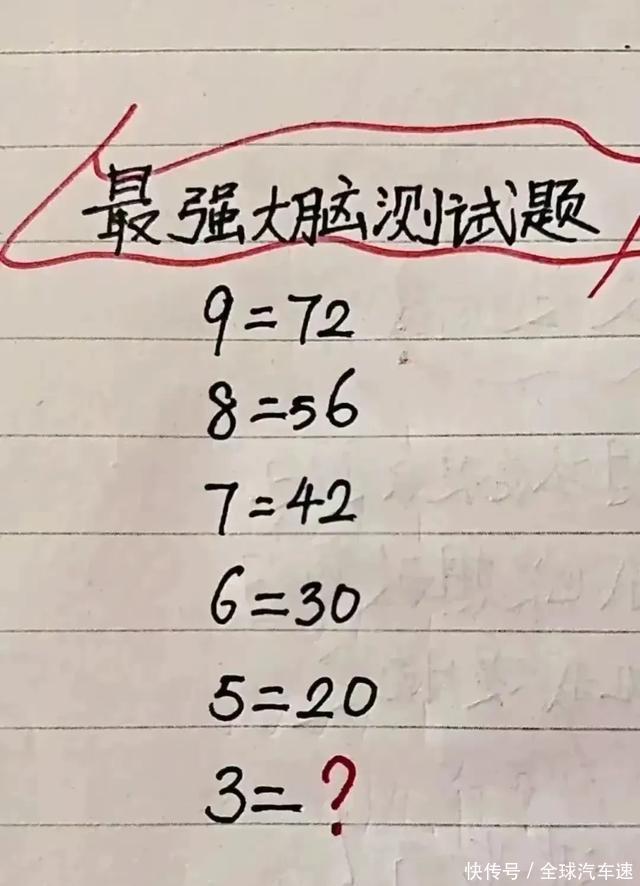 最强大脑测试题
9=72
8=56
7=42
6=30
5=20
3=?
快传号/全球汽车速